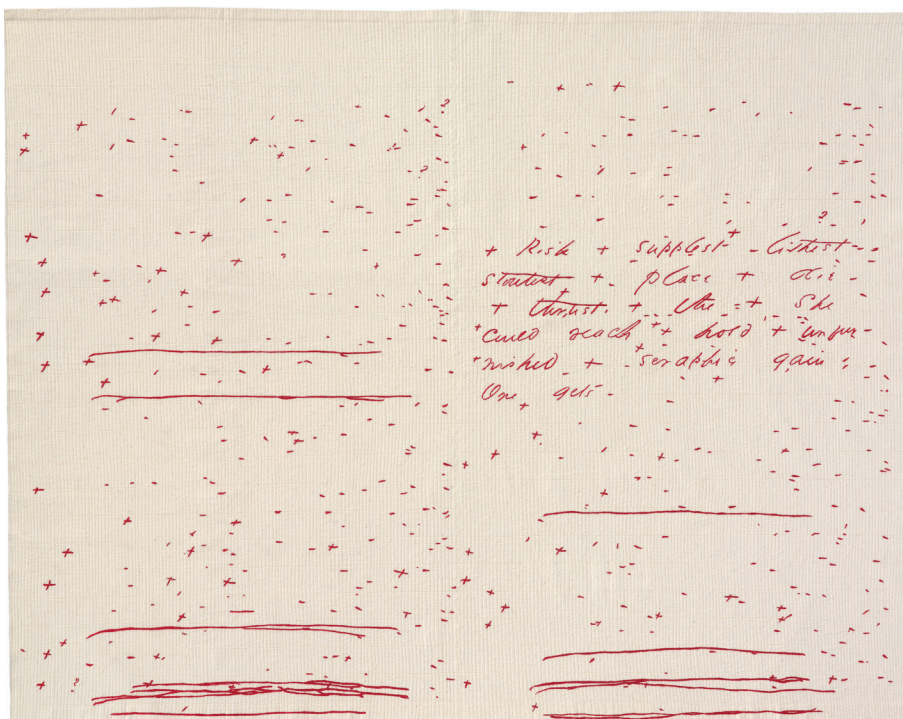 + Risk + supplest - lithest -
stoutest + place + die -
+ thrust. + the - + She
+ could reach + + hold + unfur-
+ nished + seraphic gain,
One gets -